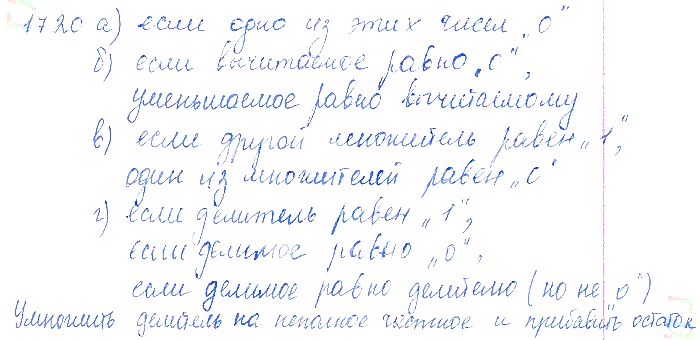 1720 а) если одно из этих чисел „0"
б) если вычитаемое равно „0",
уменьшаемое равно вычитаемому
в) если другой множитель равен „1",
один из множителей равен „0"
г) если делитель равен „1",
если делимое равно „0",
если делимое равно делителю (но не „0")
Умножить делитель на неполное частное и прибавить остаток